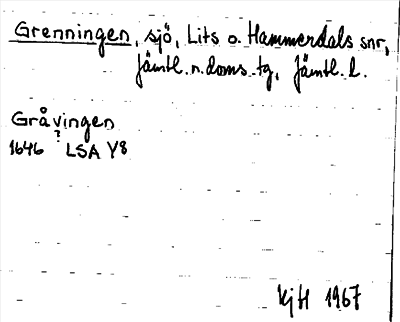 Grenningen, sjö, Lits o. Hammerdals snr,
Jämtl. n. doms. tg, Jämtl. l.
Gråvingen
?
1646 LSA Y8
KjH 1967